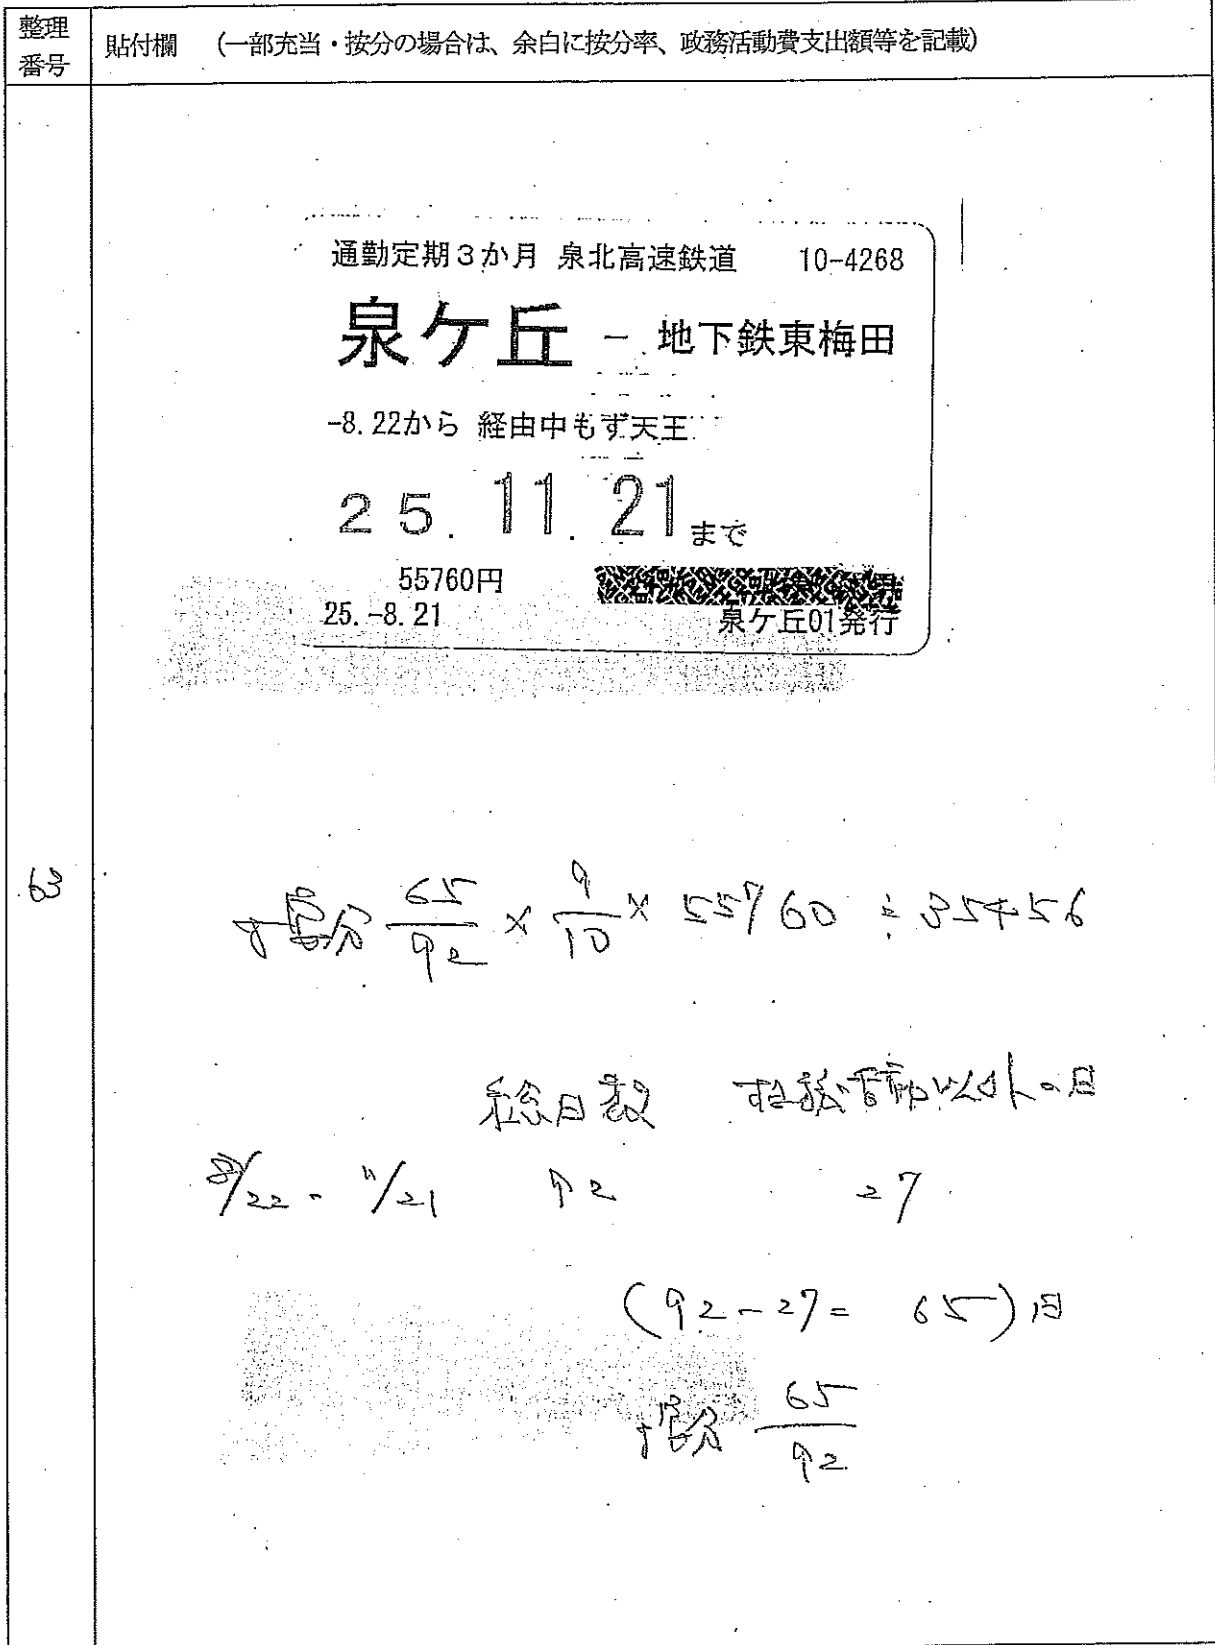 整理番号
貼付欄 (一部充当・按分の場合は、余白に按分率、政務活動費支出額等を記載)
通勤定期3か月 泉北高速鉄道 10-4268
泉ケ丘 - 地下鉄東梅田
-8.22から 経由中もず天王
25.11.21まで
55760円
25.-8.21 泉ケ丘01発行
63
按分 65/92 × 9/10 × 55760 ≒ 35456
総日数 以外の日
8/22 - 11/21 92 27
(92-27= 65)日
按分 65/92